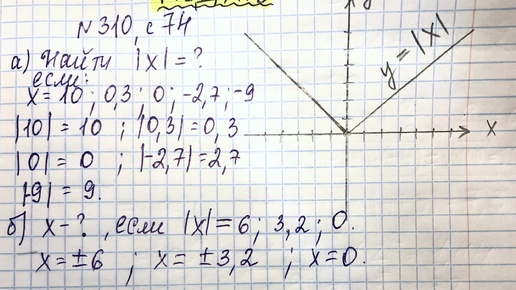 № 310, с 74
а) Найти |x| = ?
если:
x = 10 ; 0,3 ; 0 ; -2,7 ; -9
|10| = 10 ; |0,3| = 0,3
|0| = 0 ; |-2,7| = 2,7
|-9| = 9.
б) x - ? , если |x| = 6 ; 3,2 ; 0.
x = ±6 ; x = ±3,2 ; x = 0.
y
y = |x|
x